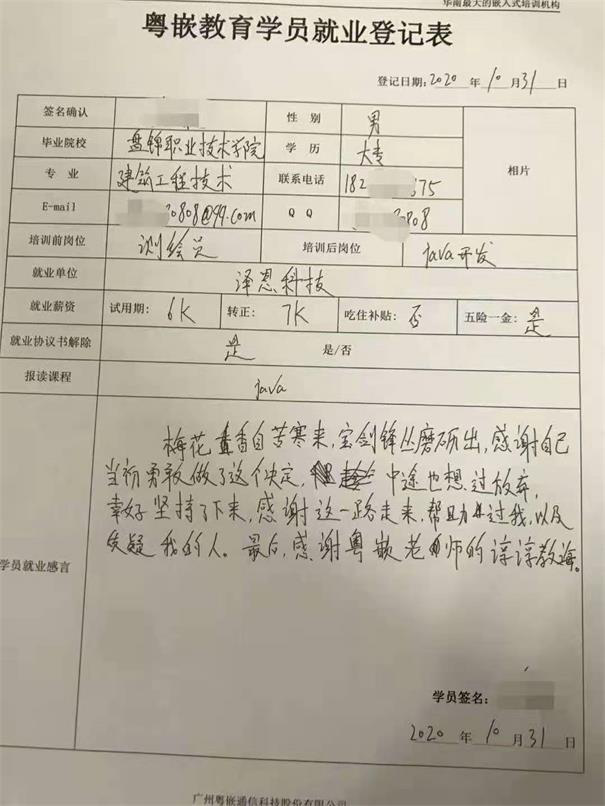 华南最大的嵌入式培训机构
粤嵌教育学员就业登记表
登记日期:2020 年 10 月 31 日
签名确认 性 别 男
毕业院校 盘锦职业技术学院 学 历 大专
专 业 建筑工程技术 联系电话 182 675
E-mail 0808@qq.com Q Q 0808
相片
培训前岗位 测绘员 培训后岗位 java开发
就业单位 泽恩科技
就业薪资 试用期: 6K 转正: 7K 吃住补贴: 否 五险一金: 是
就业协议书解除 是 是/否
报读课程 java
梅花香自苦寒来,宝剑锋从磨砺出,感谢自己
当初勇敢做了这个决定, 中途也想过放弃,
幸好坚持了下来,感谢这一路走来,帮助过我,以及
质疑我的人。最后,感谢粤嵌老师的谆谆教诲。
学员就业感言
学员签名:
2020 年 10 月 31 日
广州粤嵌通信科技股份有限公司